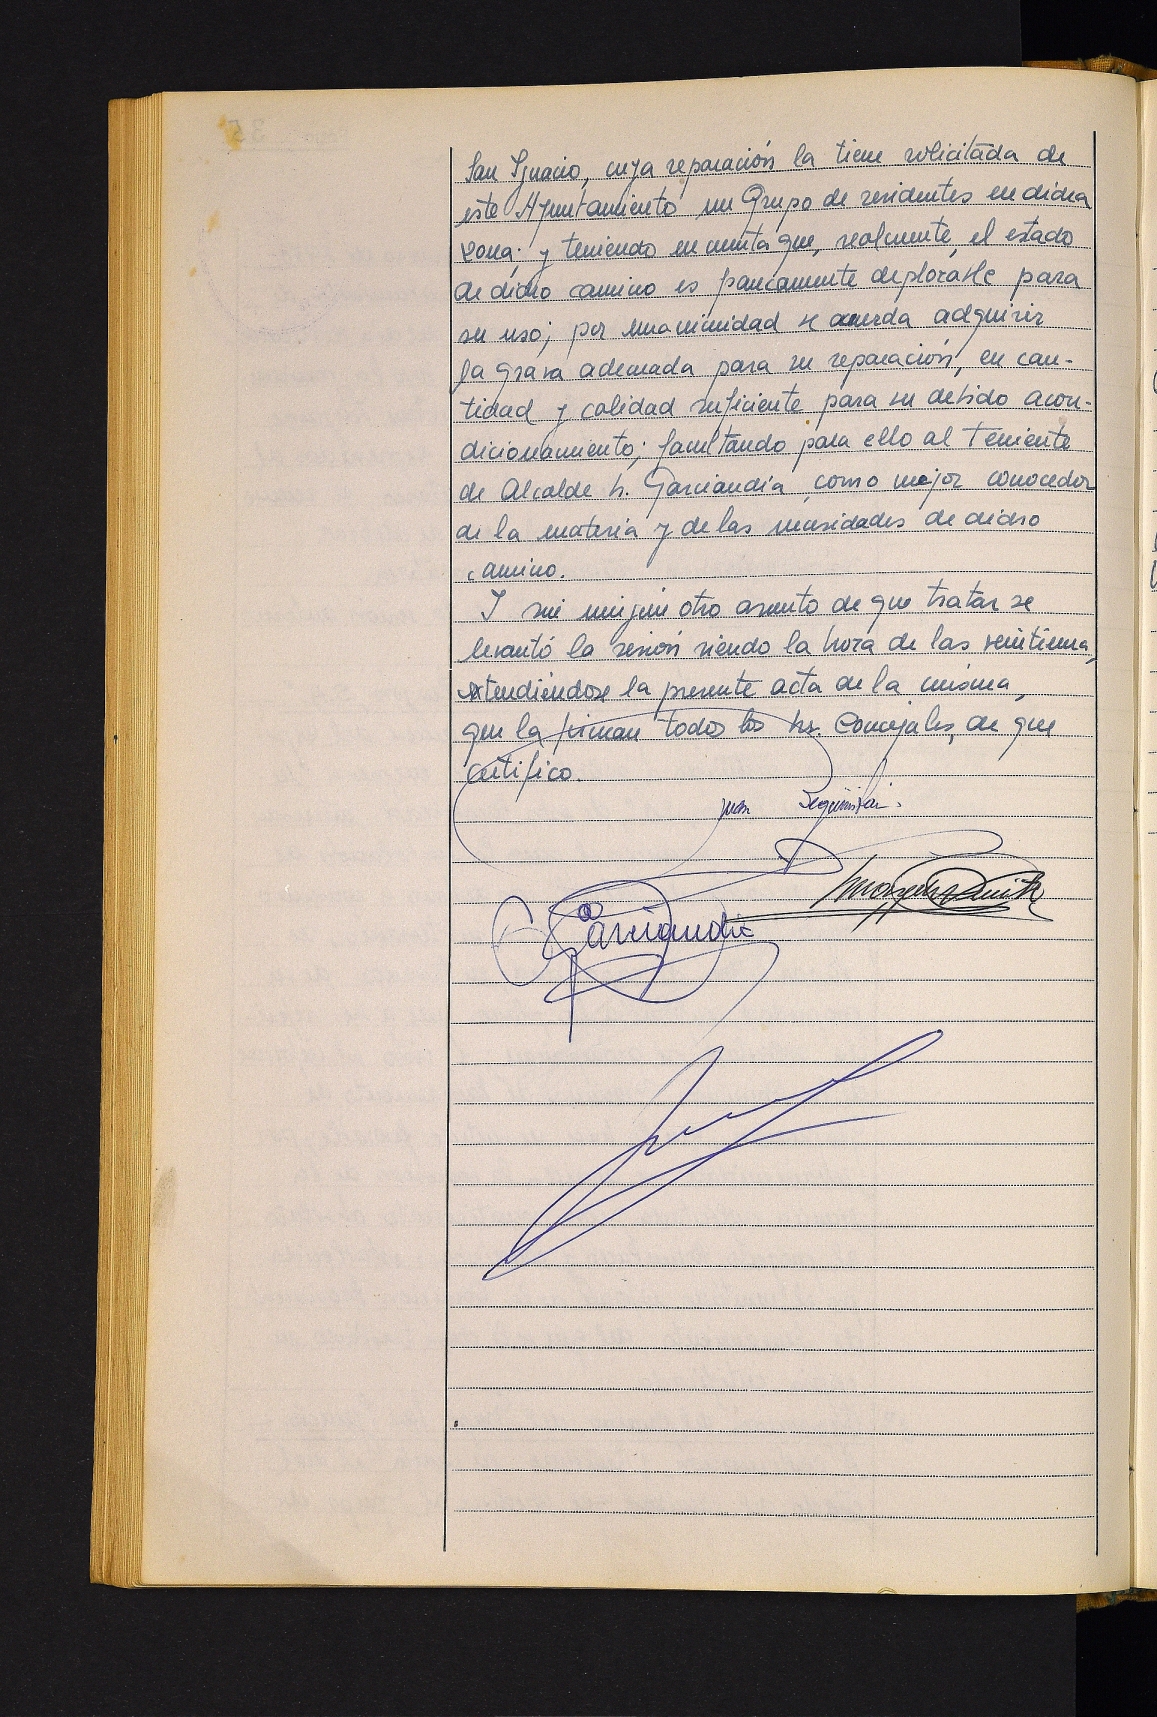 San Ignacio, cuya reparación la tiene solicitada de
este Ayuntamiento un Grupo de residentes en dicha
zona; y teniendo en cuenta que, realmente, el estado
de dicho camino es francamente deplorable para
su uso; por unanimidad se acuerda adquirir
la grava adecuada para su reparación, en can-
tidad y calidad suficiente para su debido acon-
dicionamiento; facultando para ello al Teniente
de Alcalde Sr. Garciandia, como mejor conocedor
de la materia y de las necesidades de dicho
camino.
Y sin ningún otro asunto de que tratar se
levantó la sesión siendo la hora de las veintiuna,
extendiéndose la presente acta de la misma,
que la firman todos los Srs. Concejales, de que
certifico.
Juan
Garciandia